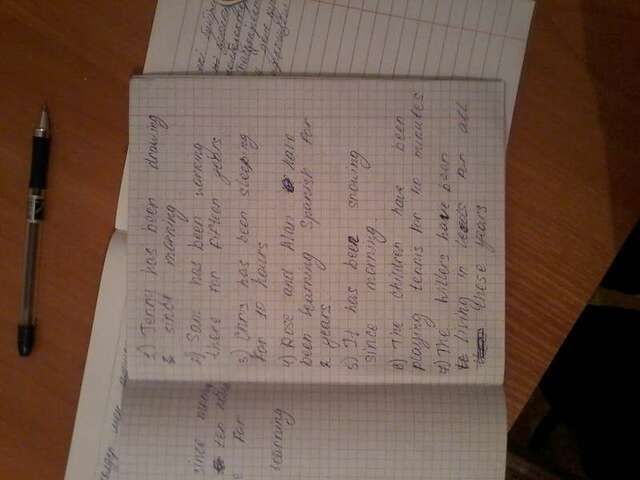 since
ten
for
learning
1) Jenny has been drawing
since morning
2) Sam has been working
there for fifteen years
3) Chris has been sleeping
for 10 hours
4) Rose and Alan have
been learning Spanish for
2 years
5) It has been snowing
since morning.
6) The children have been
playing tennis for 40 minutes
7) The Willers have been
living in Leeds for all
these years